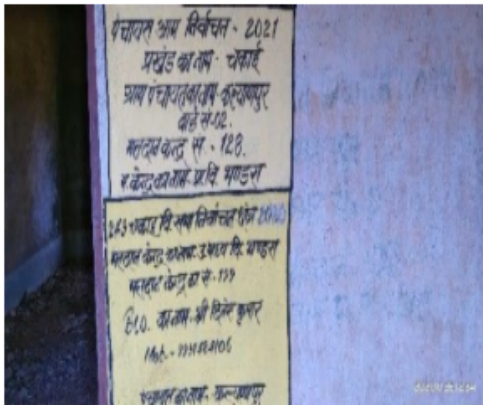 पंचायत आम निर्वाचन - 2021
प्रखंड का नाम - चकाई
ग्राम पंचायत का नाम - कल्याणपुर
वार्ड सं-02.
मतदान केन्द्र सं. - 128.
म. केन्द्र का नाम - प्रा. वि.
243 चकाई वि. सभा निर्वाचन क्षेत्र 2020
मतदान केन्द्र का नाम - उ. मध्य वि.
मतदान केन्द्र का सं.
B.L.O. का नाम - श्री दिनेश कुमार
Mob. -
पंचायत का नाम - कल्याणपुर